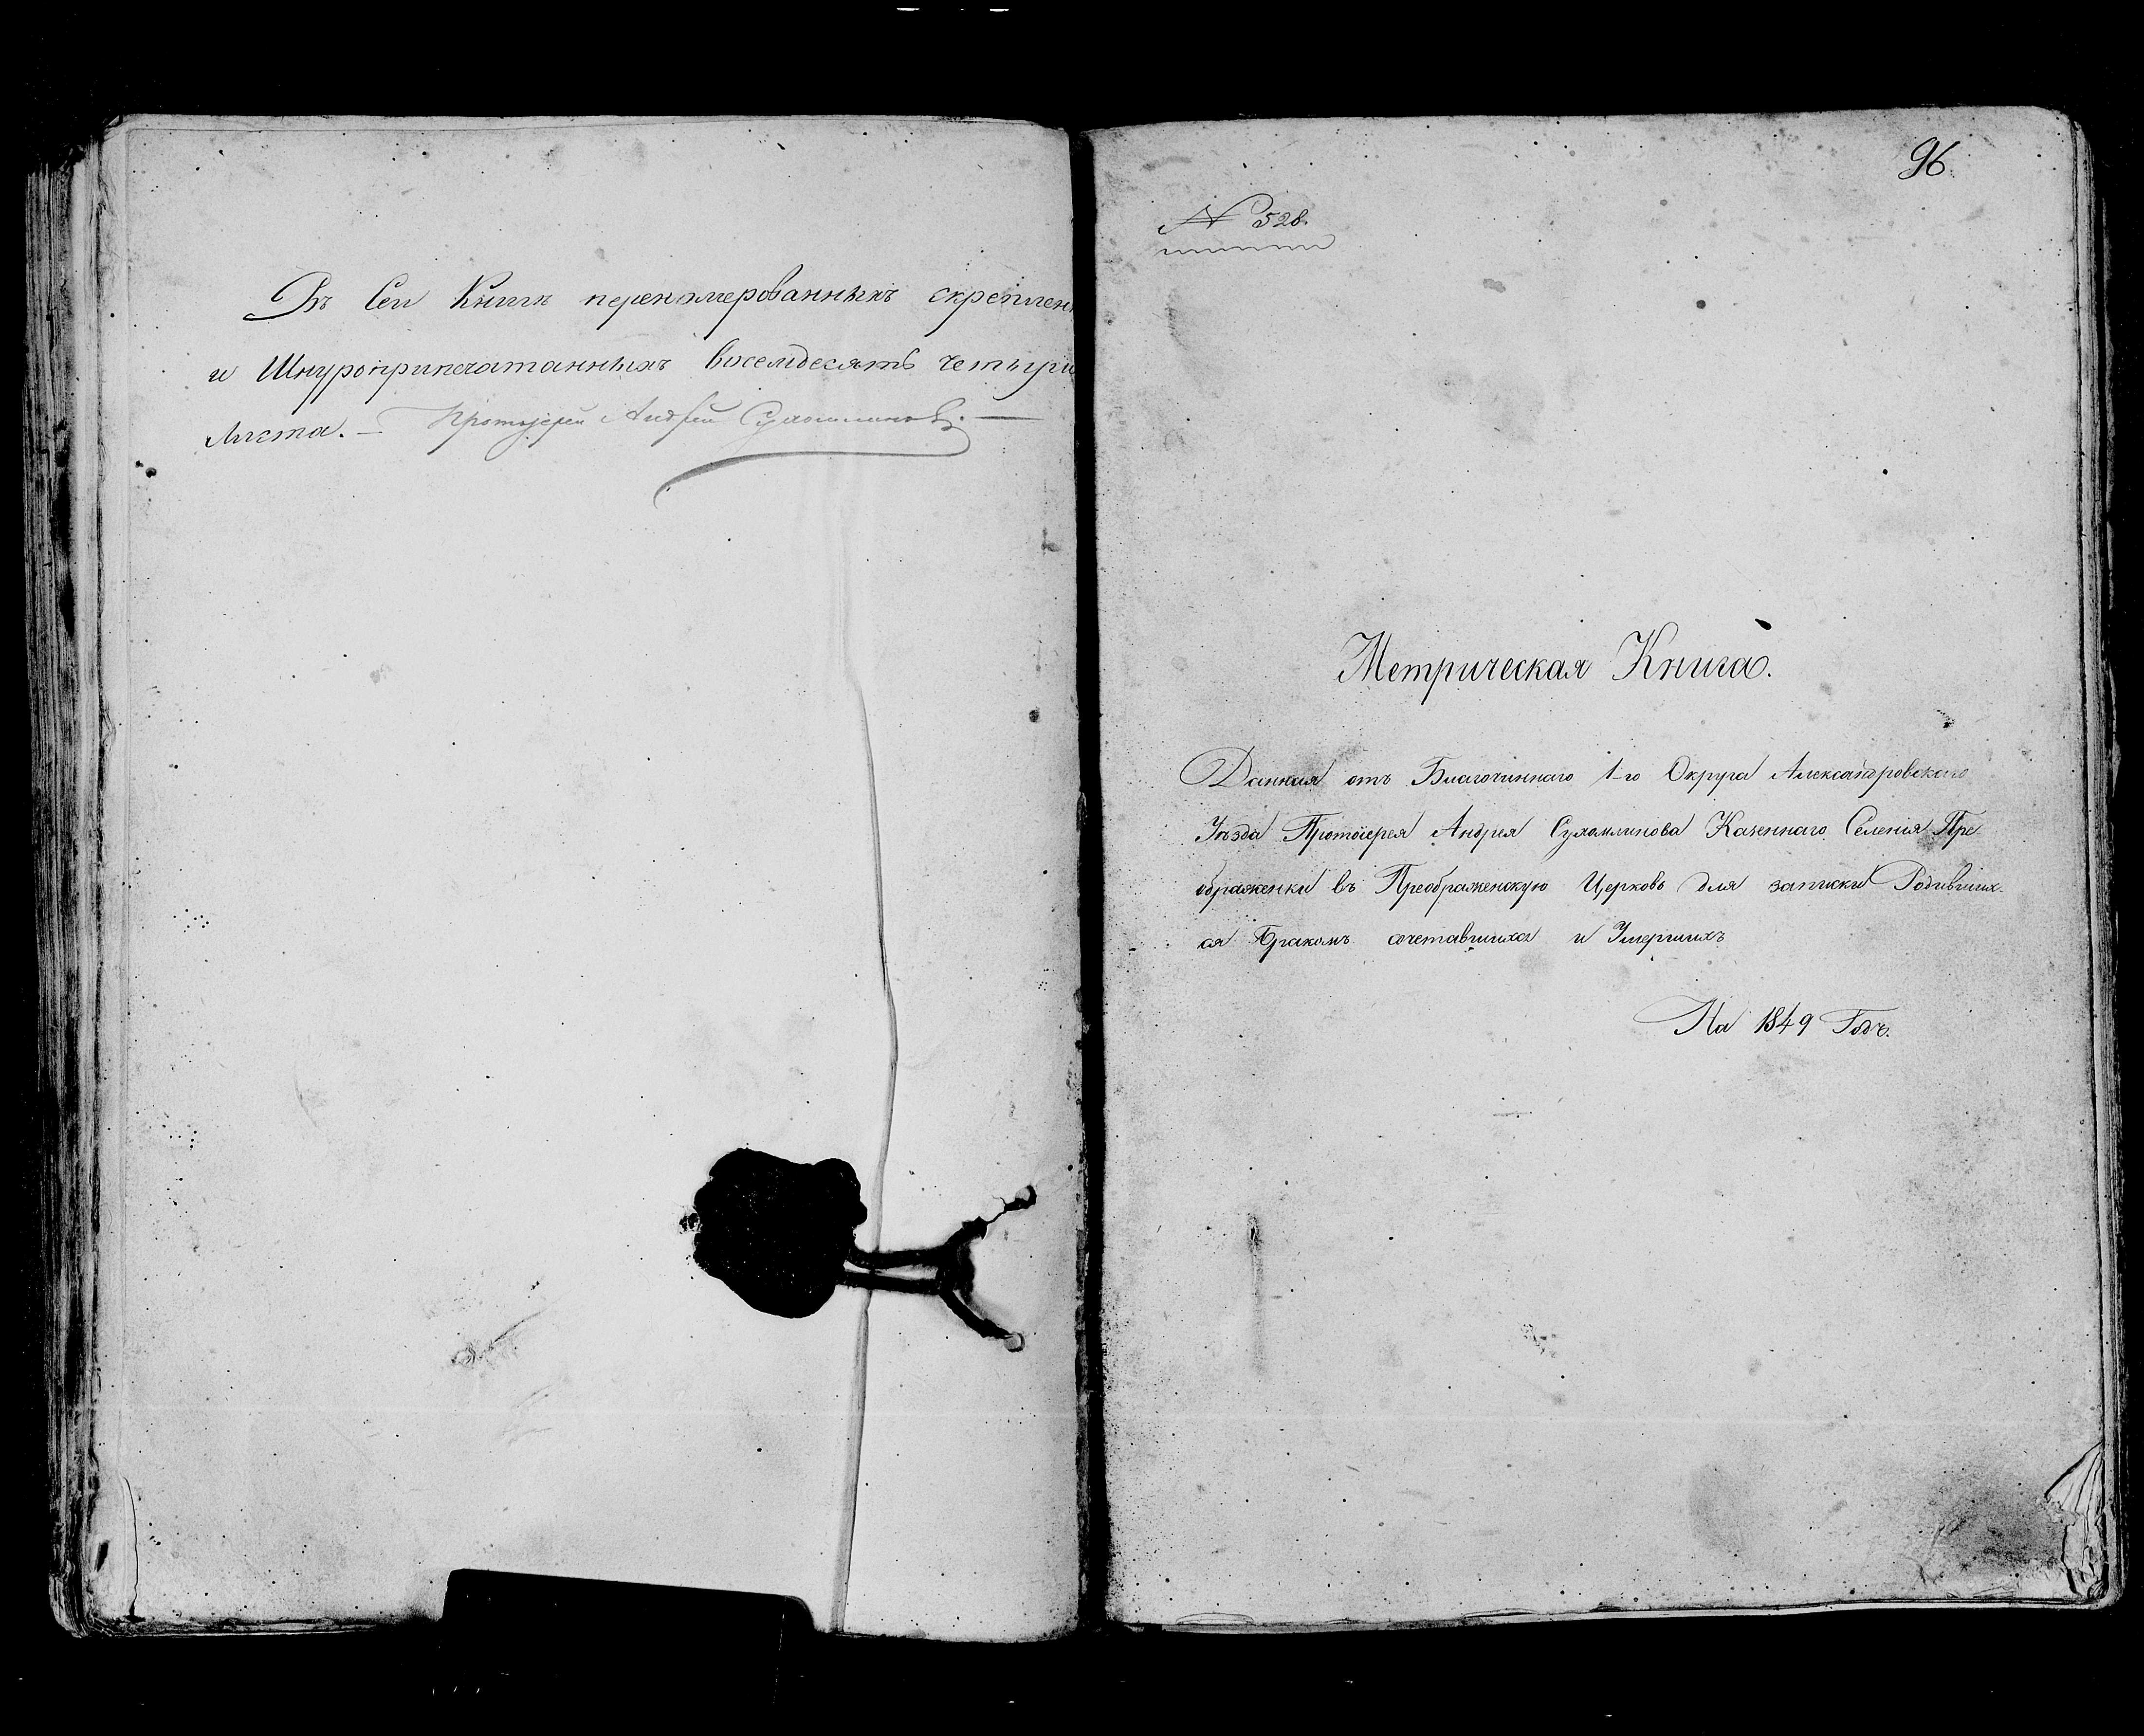 Въ Сей Книгѣ перенумерованныхъ скреплен
и Шнуроприпечатанныхъ восемдесятъ четыри
Листа. — Протоіерей Андрей Сухомлиновъ. —
96
№ 528.
Метрическая Книга.
Данная отъ Благочиннаго 1-го Округа Александровскаго
Уѣзда Протоіерея Андрея Сухомлинова Казеннаго Селенія Пре
ображенки въ Преображенскую Церковь для записки Родивших-
ся Бракомъ сочетавшихся и Умершихъ
На 1849 Годъ.